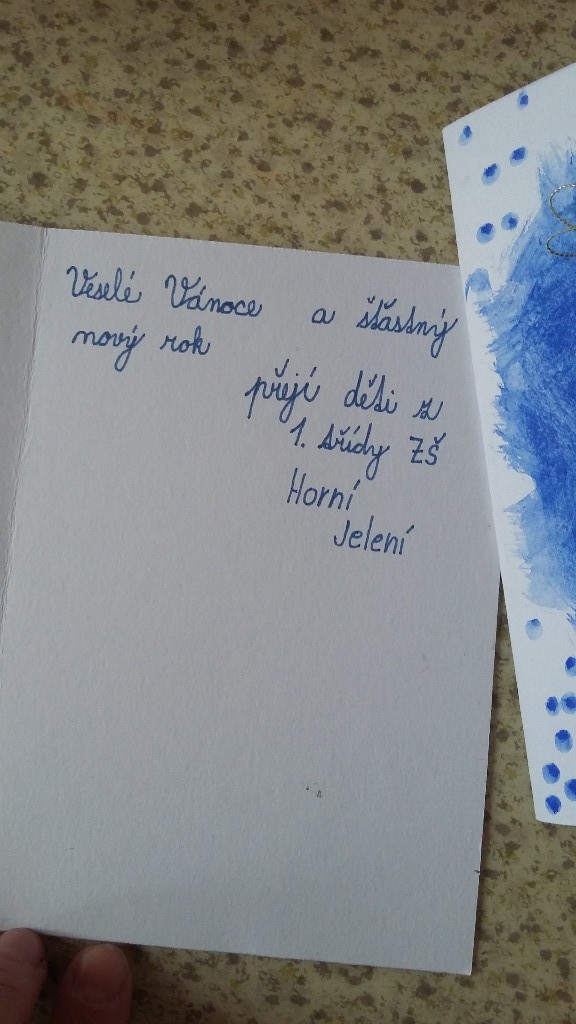 Veselé Vánoce a šťastný
nový rok
přejí děti z
1. třídy ZŠ
Horní
Jelení